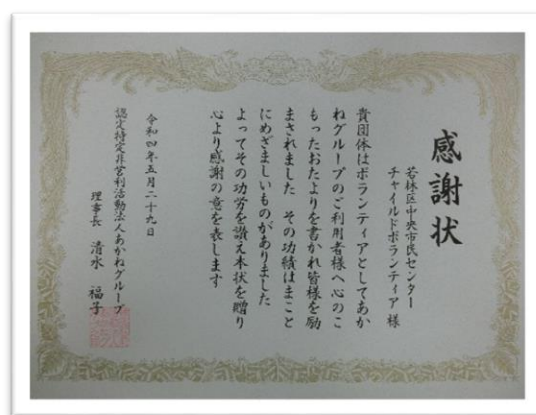 感謝状
若林区中央市民センター
チャイルドボランティア 様
貴団体はボランティアとしてあか
ねグループのご利用者様へ心のこ
もったおたよりを書かれ皆様を励
まされました その功績はまこと
にめざましいものがありました
よってその功労を讃え本状を贈り
心より感謝の意を表します
令和四年五月二十九日
認定特定非営利活動法人あかねグループ
理事長 清水 福子